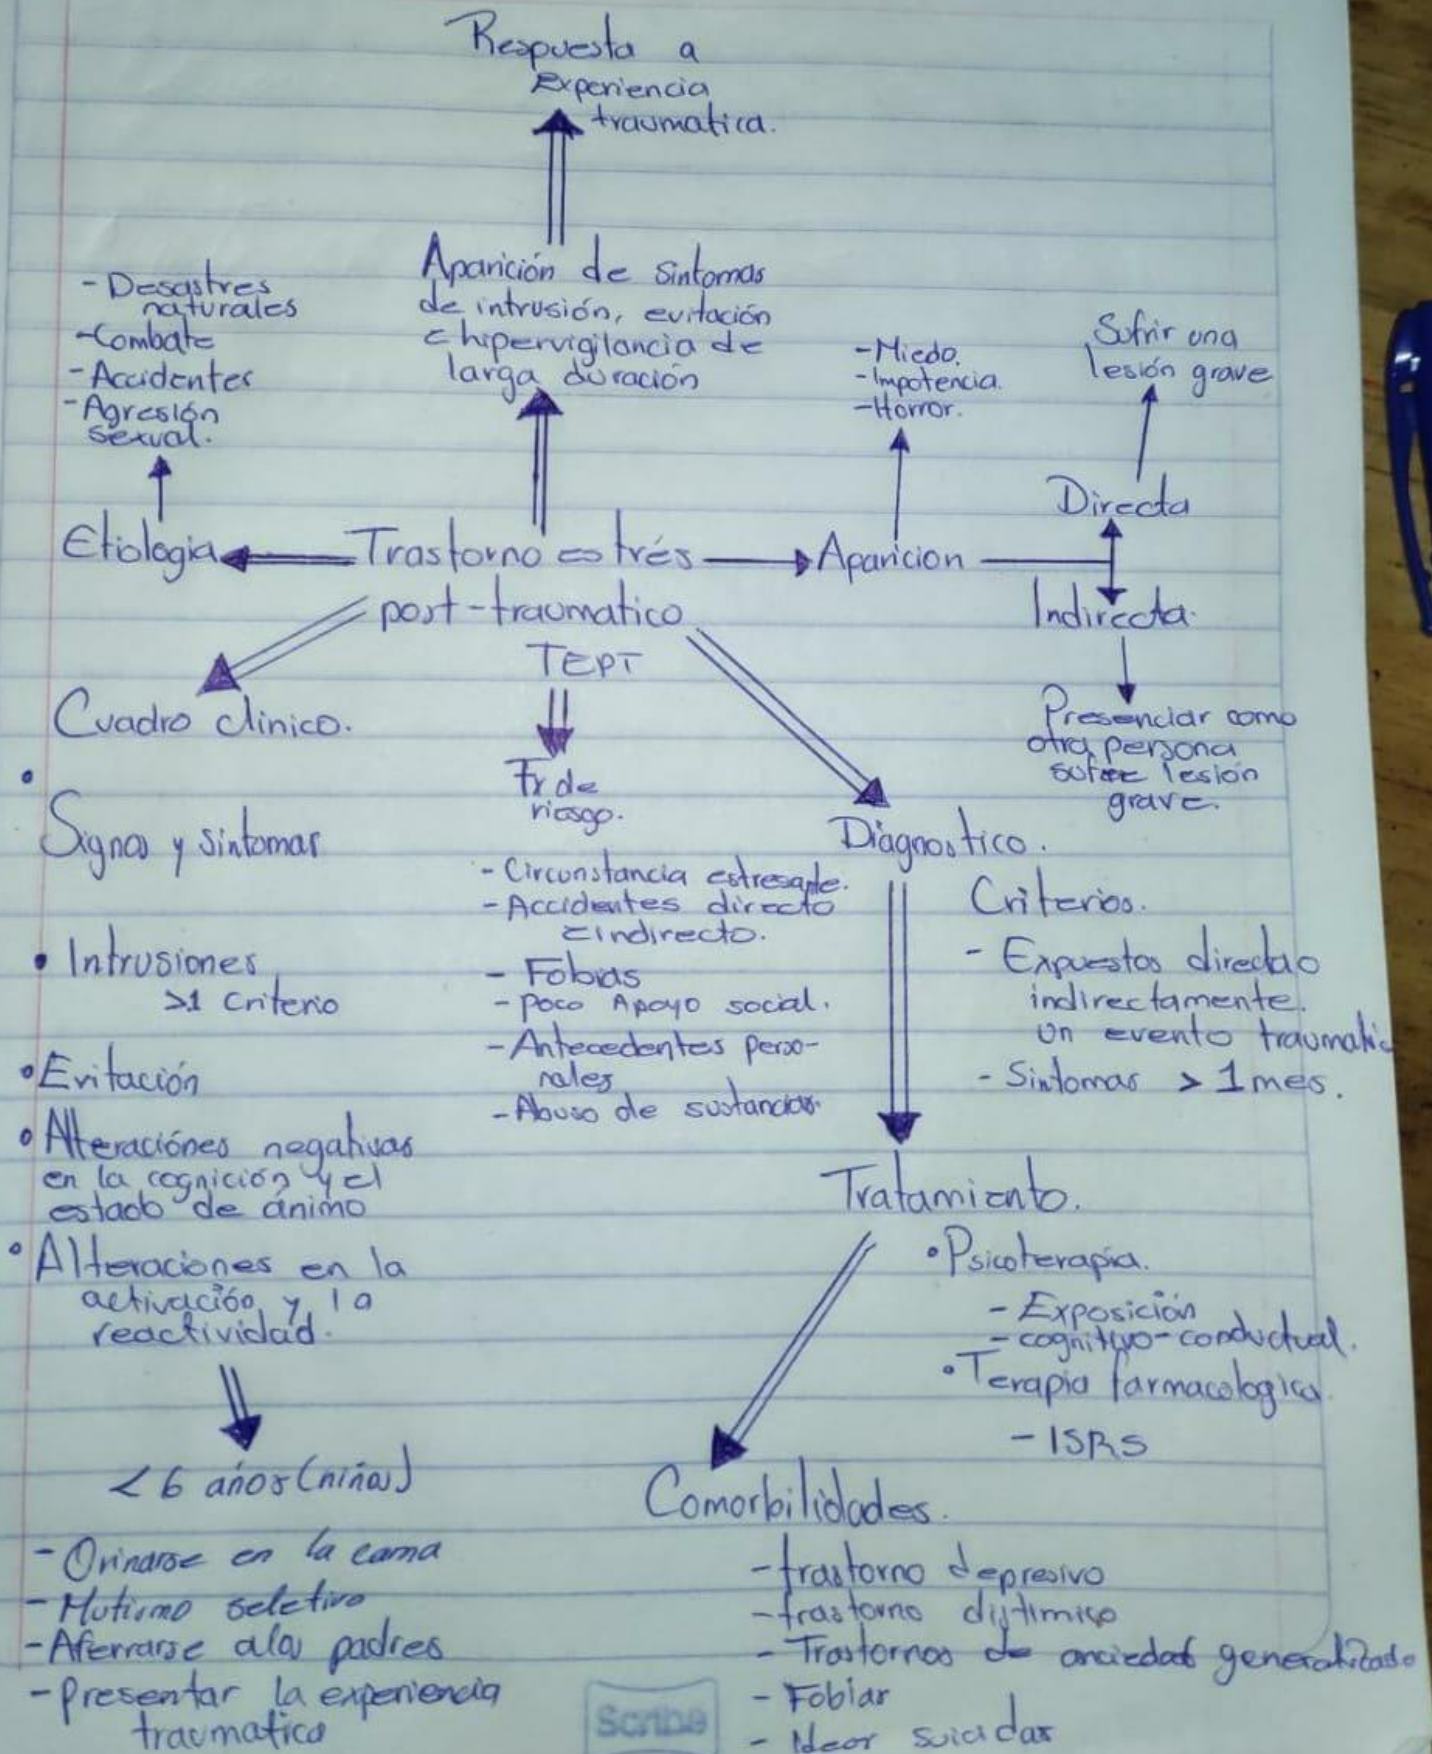 Respuesta a
Experiencia
traumatica.
Aparición de sintomas
de intrusión, evitación
e hipervigilancia de
larga duración
- Desastres
naturales
- Combate
- Accidentes
- Agresión
sexual.
- Miedo.
- Impotencia.
- Horror.
Sufrir una
lesión grave
Directa
Etiologia
Trastorno estrés
post-traumatico
TEPT
Aparicion
Indirecta.
Presenciar como
otra persona
sufre lesión
grave.
Cuadro clinico.
Signos y sintomas
• Intrusiones
>1 Criterio
• Evitación
• Alteraciónes negativas
en la cognición y el
estado de ánimo
• Alteraciones en la
activación y la
reactividad.
< 6 años (niños)
- Orinarse en la cama
- Mutismo seletivo
- Aferrarse a los padres
- presentar la experiencia
traumatica
Fr de
riesgo.
- Circunstancia estresante.
- Accidentes directo
e indirecto.
- Fobias
- poco Apoyo social.
- Antecedentes perso-
nales
- Abuso de sustancias.
Diagnostico.
Criterios.
- Expuestos directa o
indirectamente.
un evento traumatic
- Sintomas > 1 mes.
Tratamiento.
• Psicoterapia.
- Exposición
- cognitivo-conductual.
• Terapia farmacologica.
- ISRS
Comorbilidades.
- trastorno depresivo
- trastorno distimico
- Trastornos de anciedad generalizado
- Fobias
- Ideas suicidas
Scribe